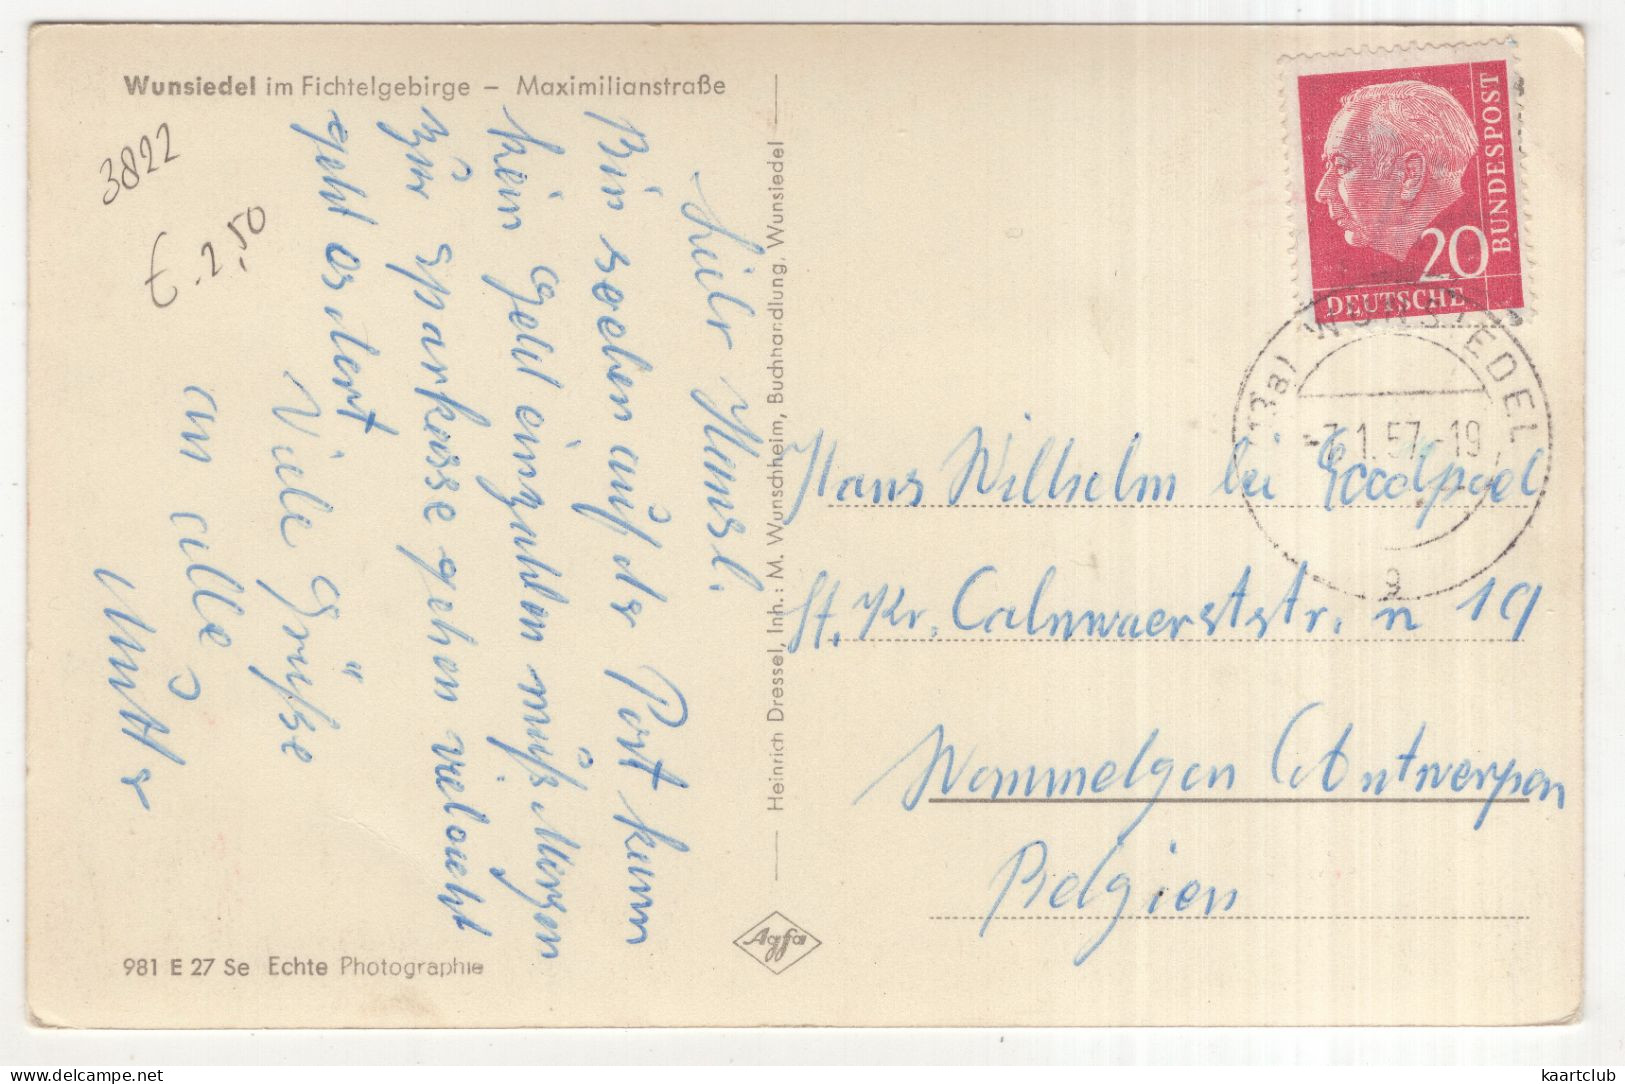 Wunsiedel im Fichtelgebirge – Maximilianstraße
3822
€. 2,50
Hansl.
Bin soeben auf der Post kann
kein Geld einzahlen muß Morgen
zur Sparkasse gehen vieleicht
geht es dort
Viele Grüße
an alle
Mutter
Heinrich Dressel, Inh.: M. Wunschheim, Buchhandlung, Wunsiedel
Agfa
981 E 27 Se Echte Photographie
20
BUNDESPOST
DEUTSCHE
WUNSIEDEL
1.57.-19
a
Hans Wilhelm bei
St. Kr. n 19
Wommelgen (Antwerpen
Belgien
kaartclub